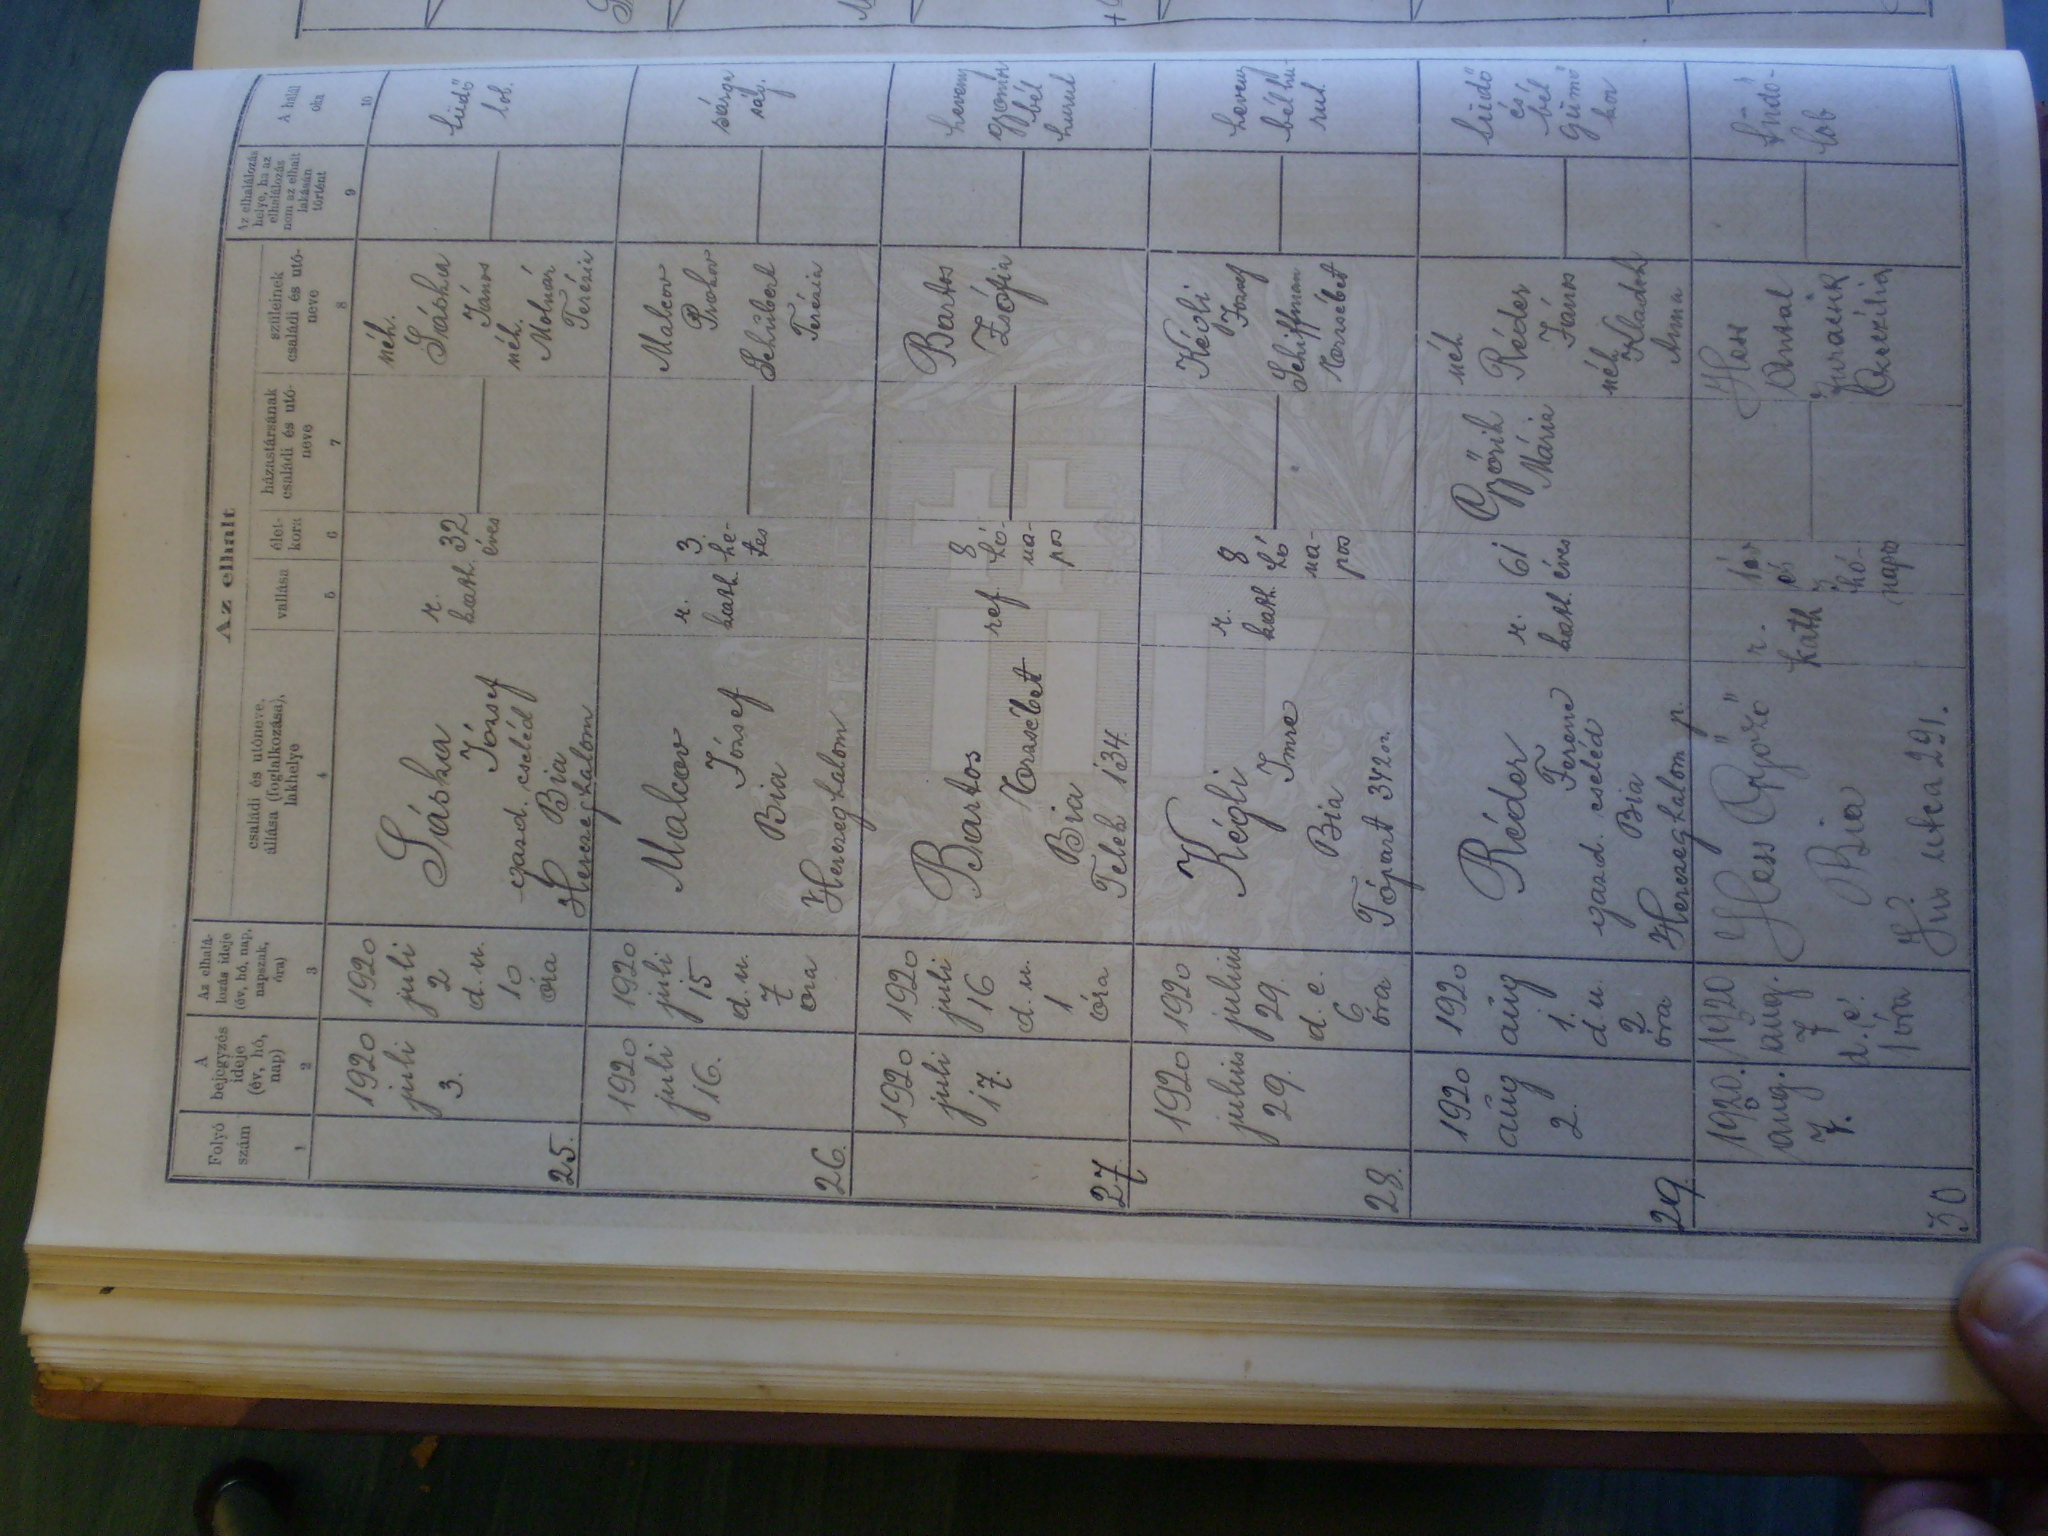 Az elhalt
Folyó
szám
A
bejegyzés
ideje
(év, hó,
nap)
Az elhalá-
lozás ideje
(év, hó, nap,
napszak,
óra)
családi és utóneve,
állása (foglalkozása),
lakhelye
vallása
élet-
kora
házastársának
családi és utó-
neve
szüleinek
családi és utó-
neve
Az elhalálozás
helye, ha az
elhalálozás
nem az elhalt
lakásán
történt
A halál
oka
1
2
3
4
5
6
7
8
9
10
25.
1920
juli
3.
1920
juli
2
d. u.
10
óra
Sáska
József
gazd. cseléd
Bia
Herczeghalom
r.
kath.
32
éves
néh.
Sáska
János
néh.
Molnár
Terézia
lüdő
lob.
26.
1920
juli
16.
1920
juli
15
d. u.
7
óra
Malcov
József
Bia
Herczeghalom
r.
kath.
3
he-
tes
Malcov
Prokov
Schübert
Terézia
sárga
ság.
27
1920
juli
17.
1920
juli
16
d. u.
1
óra
Bartos
Erzsébet
Bia
Telek 134.
ref.
8
hó-
na-
pos
Bartos
Zsófia
heveny
gyomor
bél
hurut
28.
1920
julius
29.
1920
julius
29.
d. e.
6
óra
Kégli
Imre
Bia
Tópart 342
r.
kath.
8
hó
na-
pos
Kégli
József
Schiffman
Erzsébet
heveny
bélhu-
rut.
29.
1920
aug
2.
1920
aug
1.
d. u.
2
óra
Réder
Ferenc
gazd. cseléd
Bia
Herczeghalom p.
r.
kath.
61
éves
Győrik
Mária
néh
Réder
János
néh.
Anna
lüdő
és
bél
gümő
kor
30
1920.
aug.
7.
1920
aug.
7
d. e.
1 óra
Hess Győző
Bia
utca 291.
r.
kath
1 év
és
hó-
napo
Hess
Antal
Cuczilia
tüdő-
lob